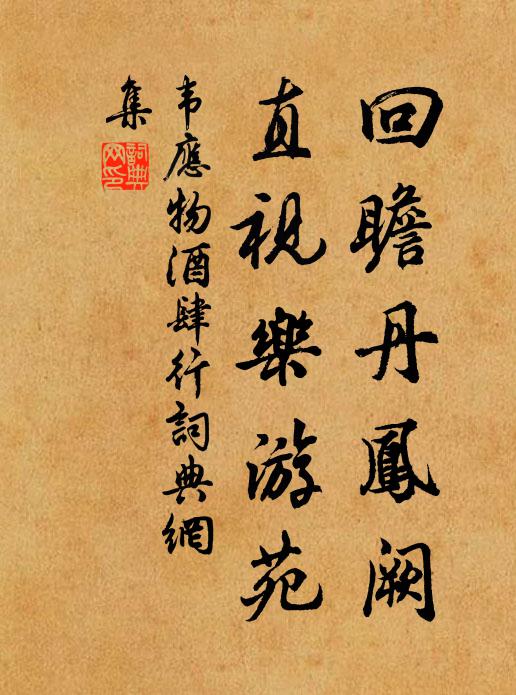 回瞻丹鳳阙
直視樂游苑
韦應物酒肆行詞典網
集
詞典网印